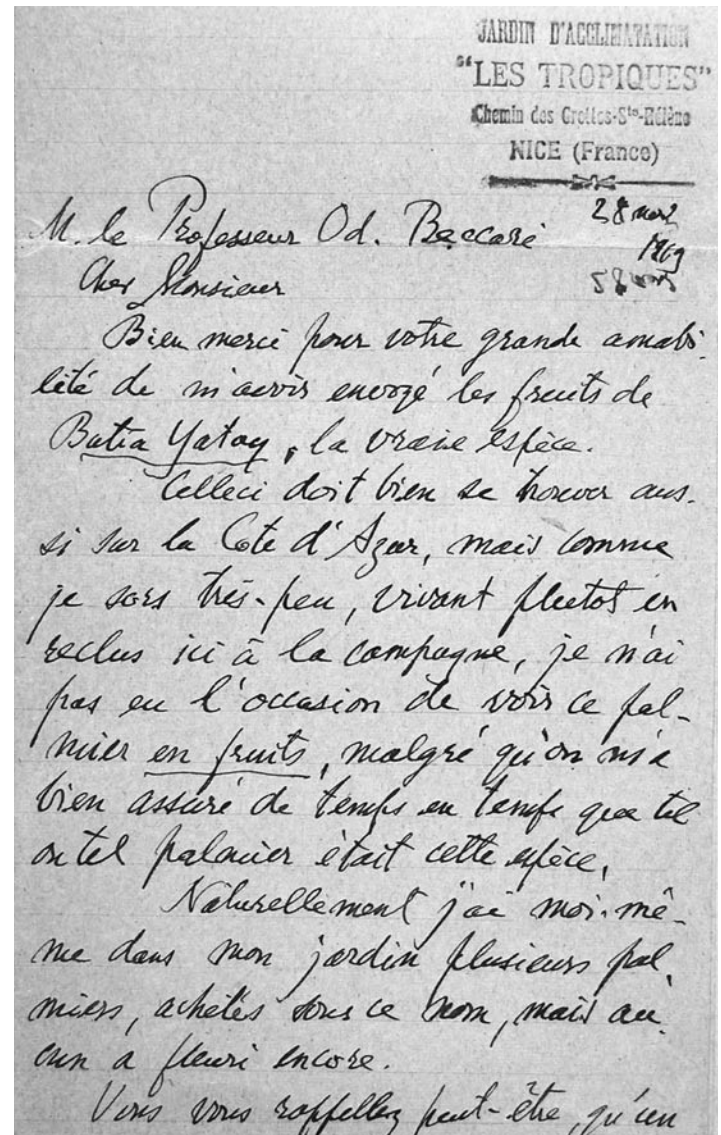 JARDIN D'ACCLIMATATION
"LES TROPIQUES"
Chemin des Grottes-Ste-Hélène
NICE (France)
28 mars
M. le Professeur Od. Beccari
Cher Monsieur
Bien merci pour votre grande amabi-
lité de m'avoir envoyé les fruits de
Butia Yatay, la vraie espèce.
Celleci doit bien se trouver aus-
si sur la Côte d'Azur, mais comme
je sors très-peu, vivant plutot en
reclus ici à la campagne, je n'ai
pas eu l'occasion de voir ce pal-
mier en fruits, malgré qu'on m'a
bien assuré de temps en temps que tel
ou tel palmier était cette espèce.
Naturellement j'ai moi-mê-
me dans mon jardin plusieurs pal-
miers, achetés sous ce nom, mais au-
cun a fleuri encore.
Vous vous rappellez peut-être, qu'un